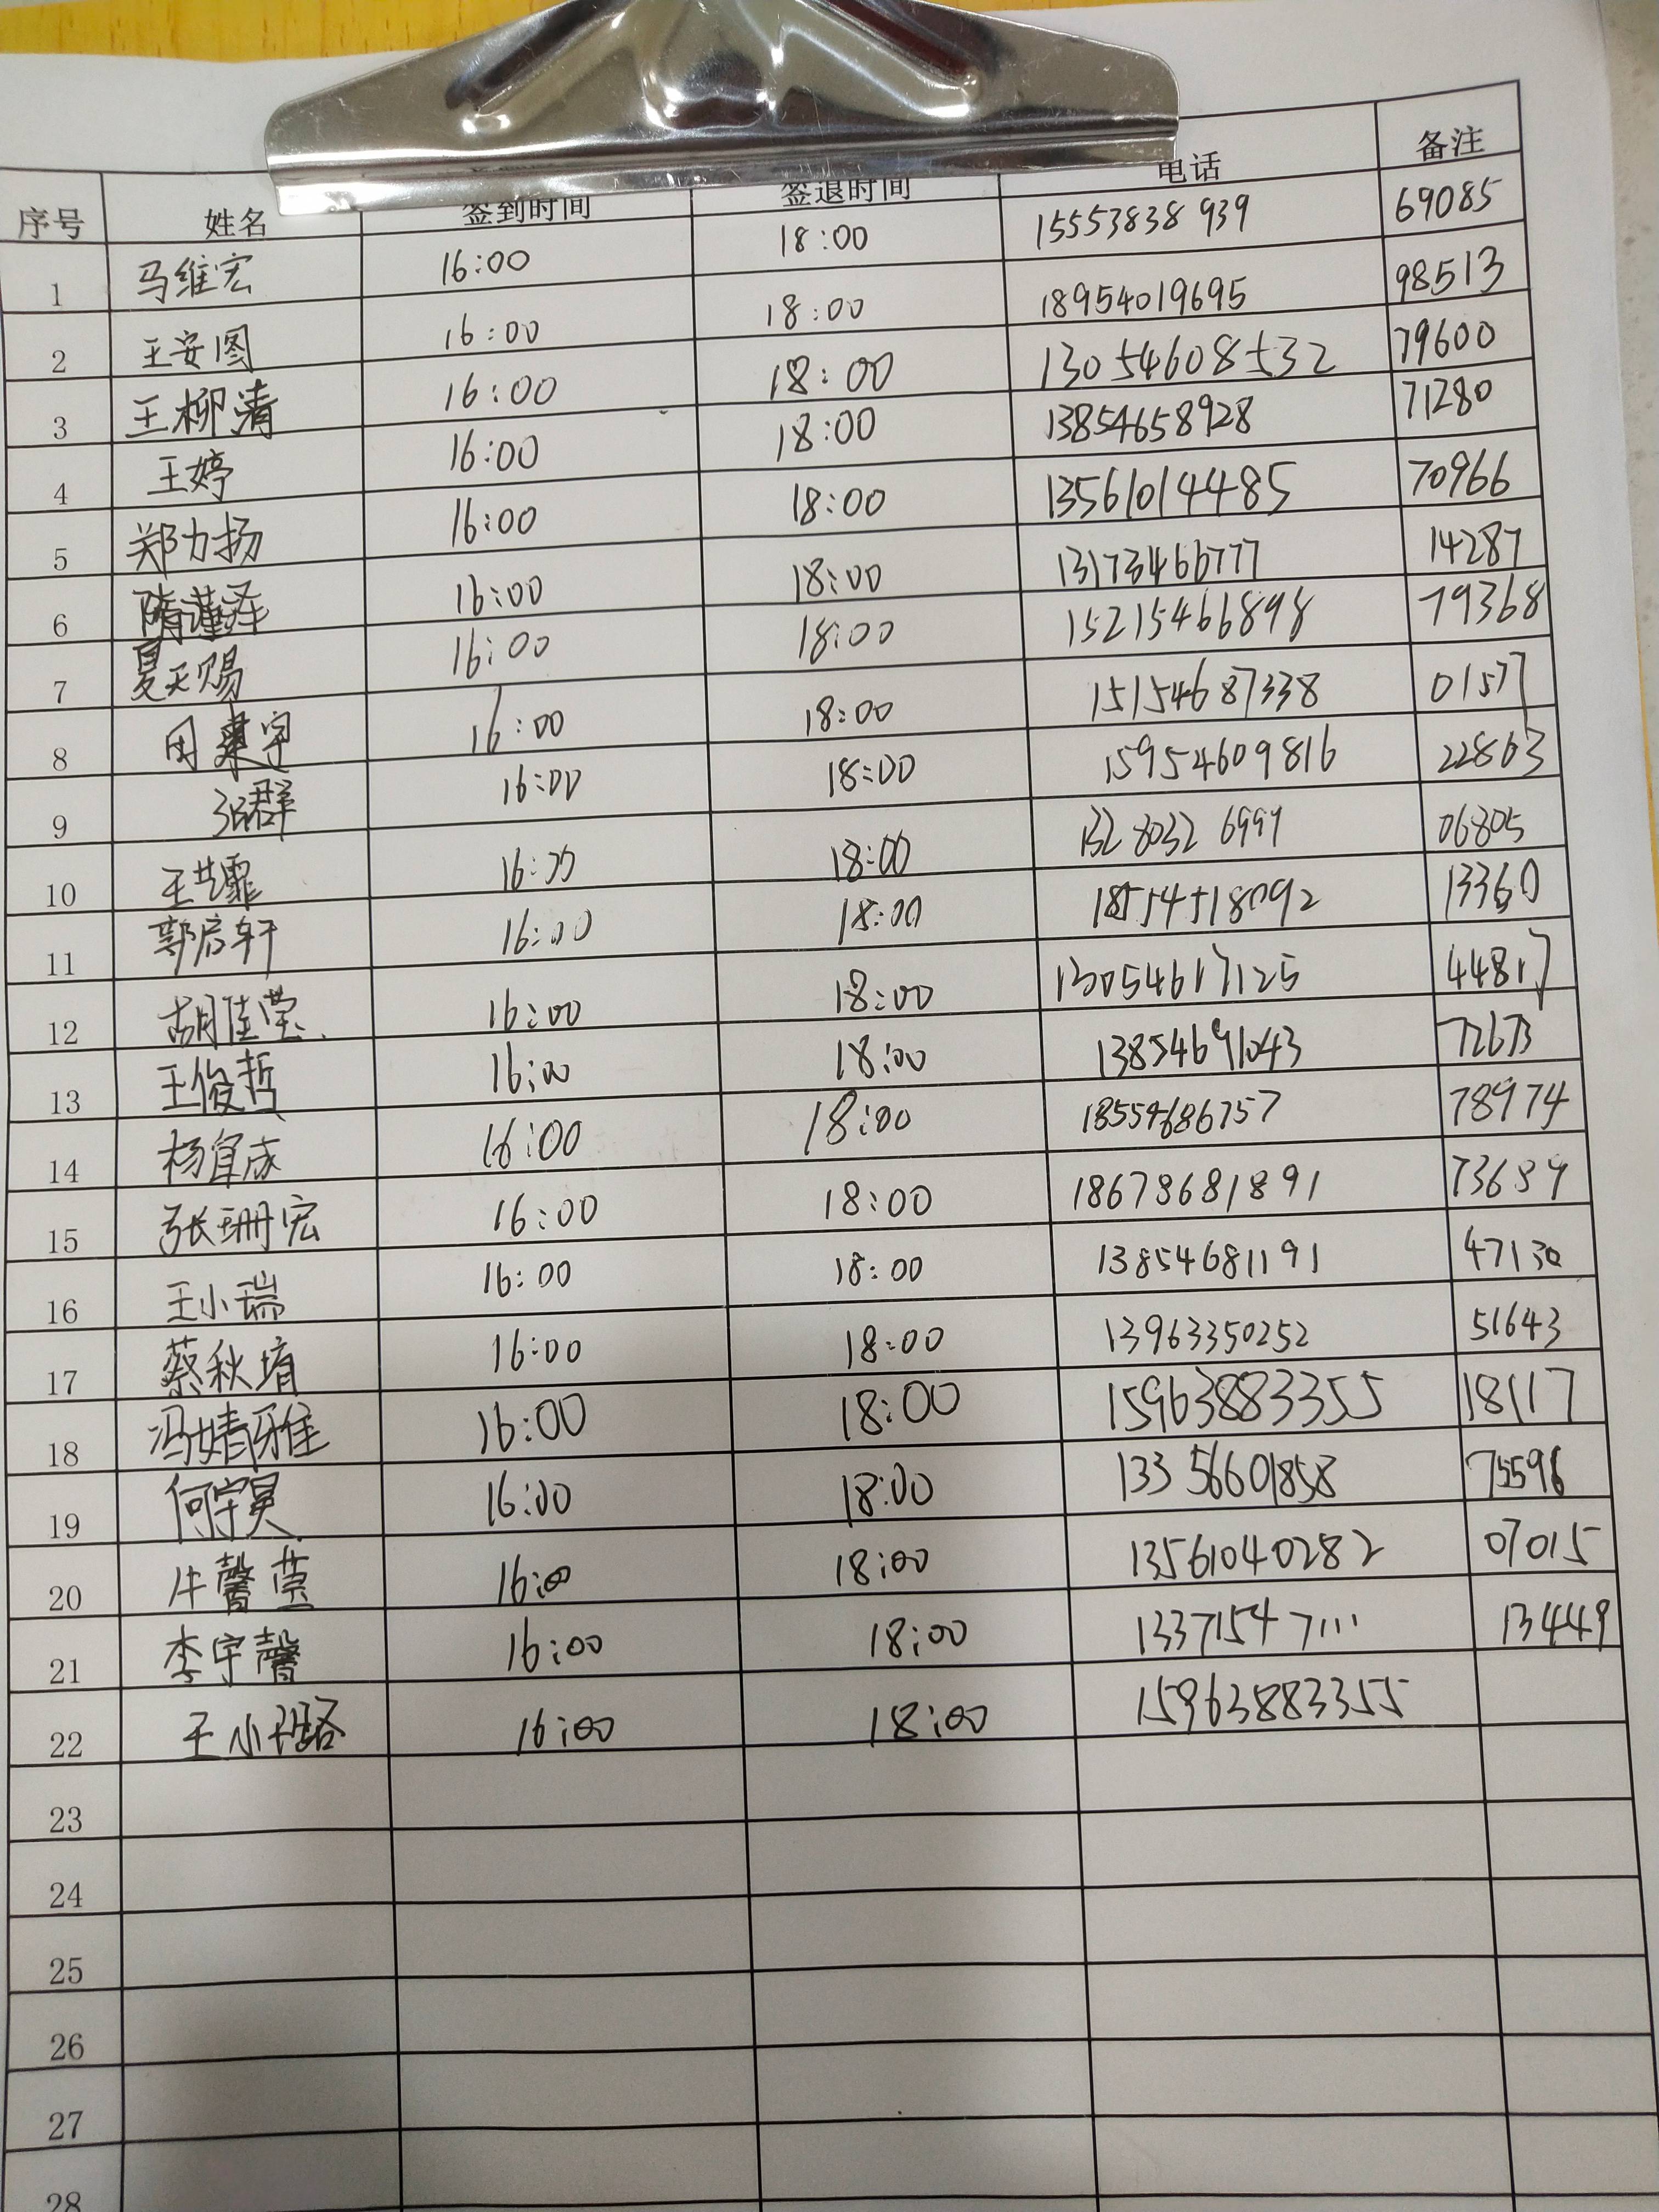 序号 姓名 签到时间 签退时间 电话 备注
1 马维宏 16:00 18:00 15553838939 69085
2 王安图 16:00 18:00 18954019695 98513
3 王柳清 16:00 18:00 13054608532 79600
4 王婷 16:00 18:00 13854658928 71280
5 郑力扬 16:00 18:00 13561014485 70966
6 隋谨泽 16:00 18:00 13173466777 14287
7 夏天赐 16:00 18:00 15215466898 79368
8 16:00 18:00 15154687338 01577
9 张群 16:00 18:00 15954609816 22863
10 王艺霏 16:00 18:00 13280326999 06805
11 郭启轩 16:00 18:00 18554518092 13360
12 胡佳莹 16:00 18:00 13054617125 44817
13 王俊哲 16:00 18:00 13854691043 72673
14 杨宜成 16:00 18:00 18554686757 78974
15 张珊宏 16:00 18:00 18678681891 73689
16 王小瑞 16:00 18:00 13854681191 47130
17 蔡秋堉 16:00 18:00 13963350252 51643
18 冯婧雅 16:00 18:00 15963883355 18117
19 何宇昊 16:00 18:00 13356601858 75596
20 牛馨 16:00 18:00 13561040282 07015
21 李宇馨 16:00 18:00 13371547111 13449
22 王小璐 16:00 18:00 15963883355
23
24
25
26
27
28